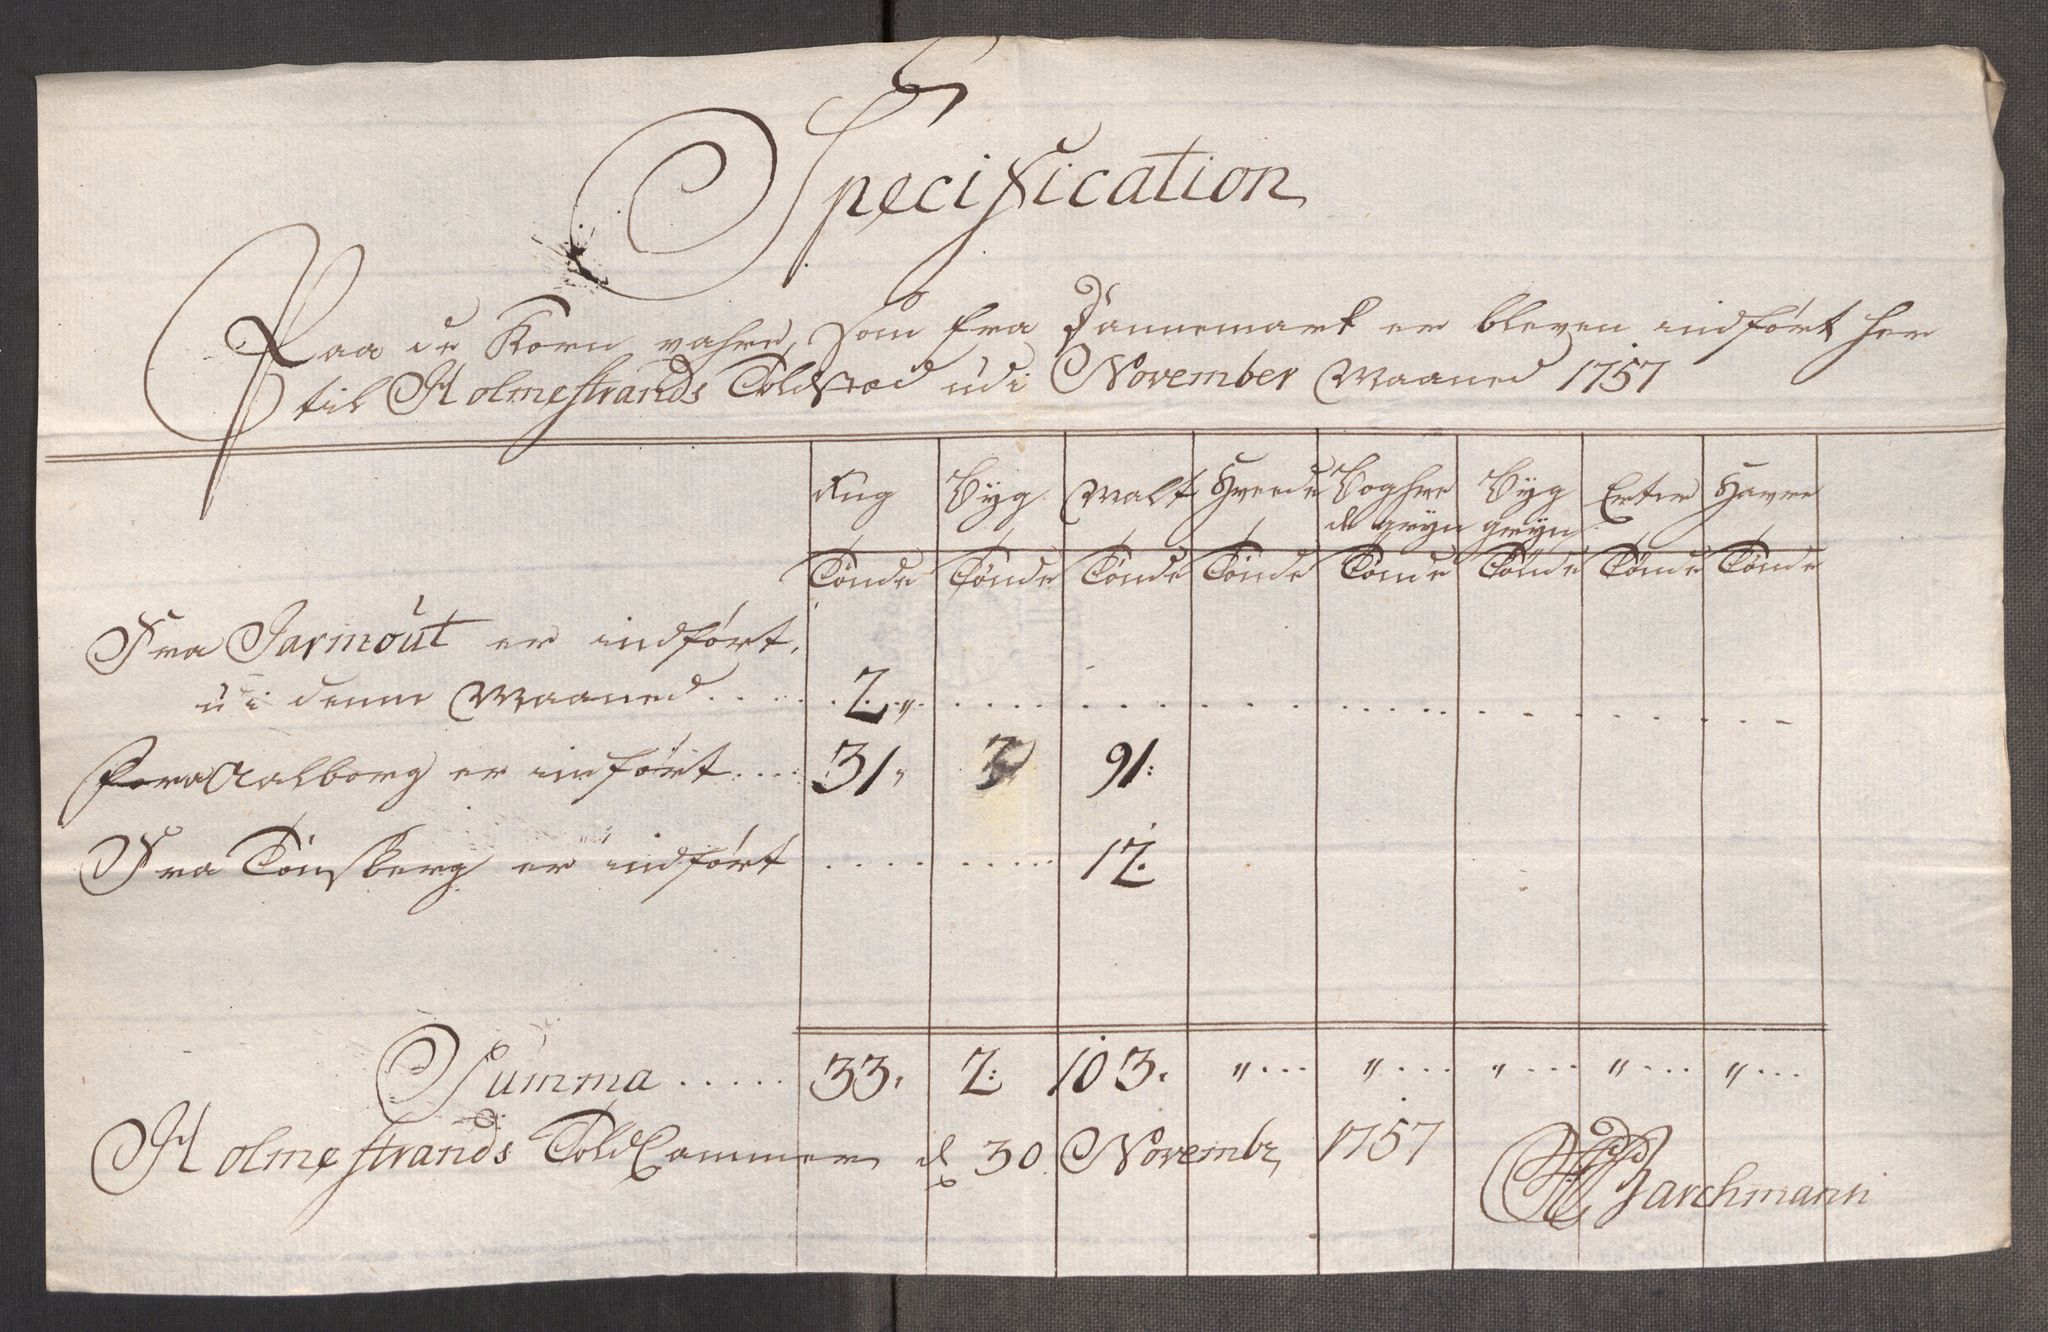 Specification
Paa de Korn vahre, som fra Dannemark er bleven indført her
til Holmestrands Toldsted udi November Maaned 1757
Rug Byg Malt Hvede Boghve Byg Erter Havre
de gryn gryn
Tønde Tønde Tønde Tønde Tønde Tønde Tønde Tønde
Fra Jarmout er indført
udi denne Maaned ..... 2 "
Fra Aalborg er indført .... 31 " 91:
Fra Tønsberg er indført ........ 12:
Summa ..... 33. 2: 103. " ... " ... " ... " ... " ...
Holmestrands ToldCammer d 30 Novembr 1757
Barchmann